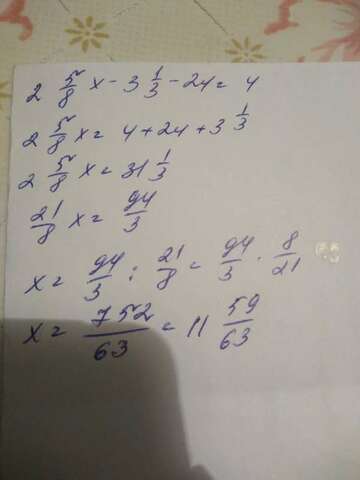 2 5/8 x - 3 1/3 - 24 = 4
2 5/8 x = 4 + 24 + 3 1/3
2 5/8 x = 31 1/3
21/8 x = 94/3
x = 94/3 : 21/8 = 94/3 · 8/21
x = 752/63 = 11 59/63